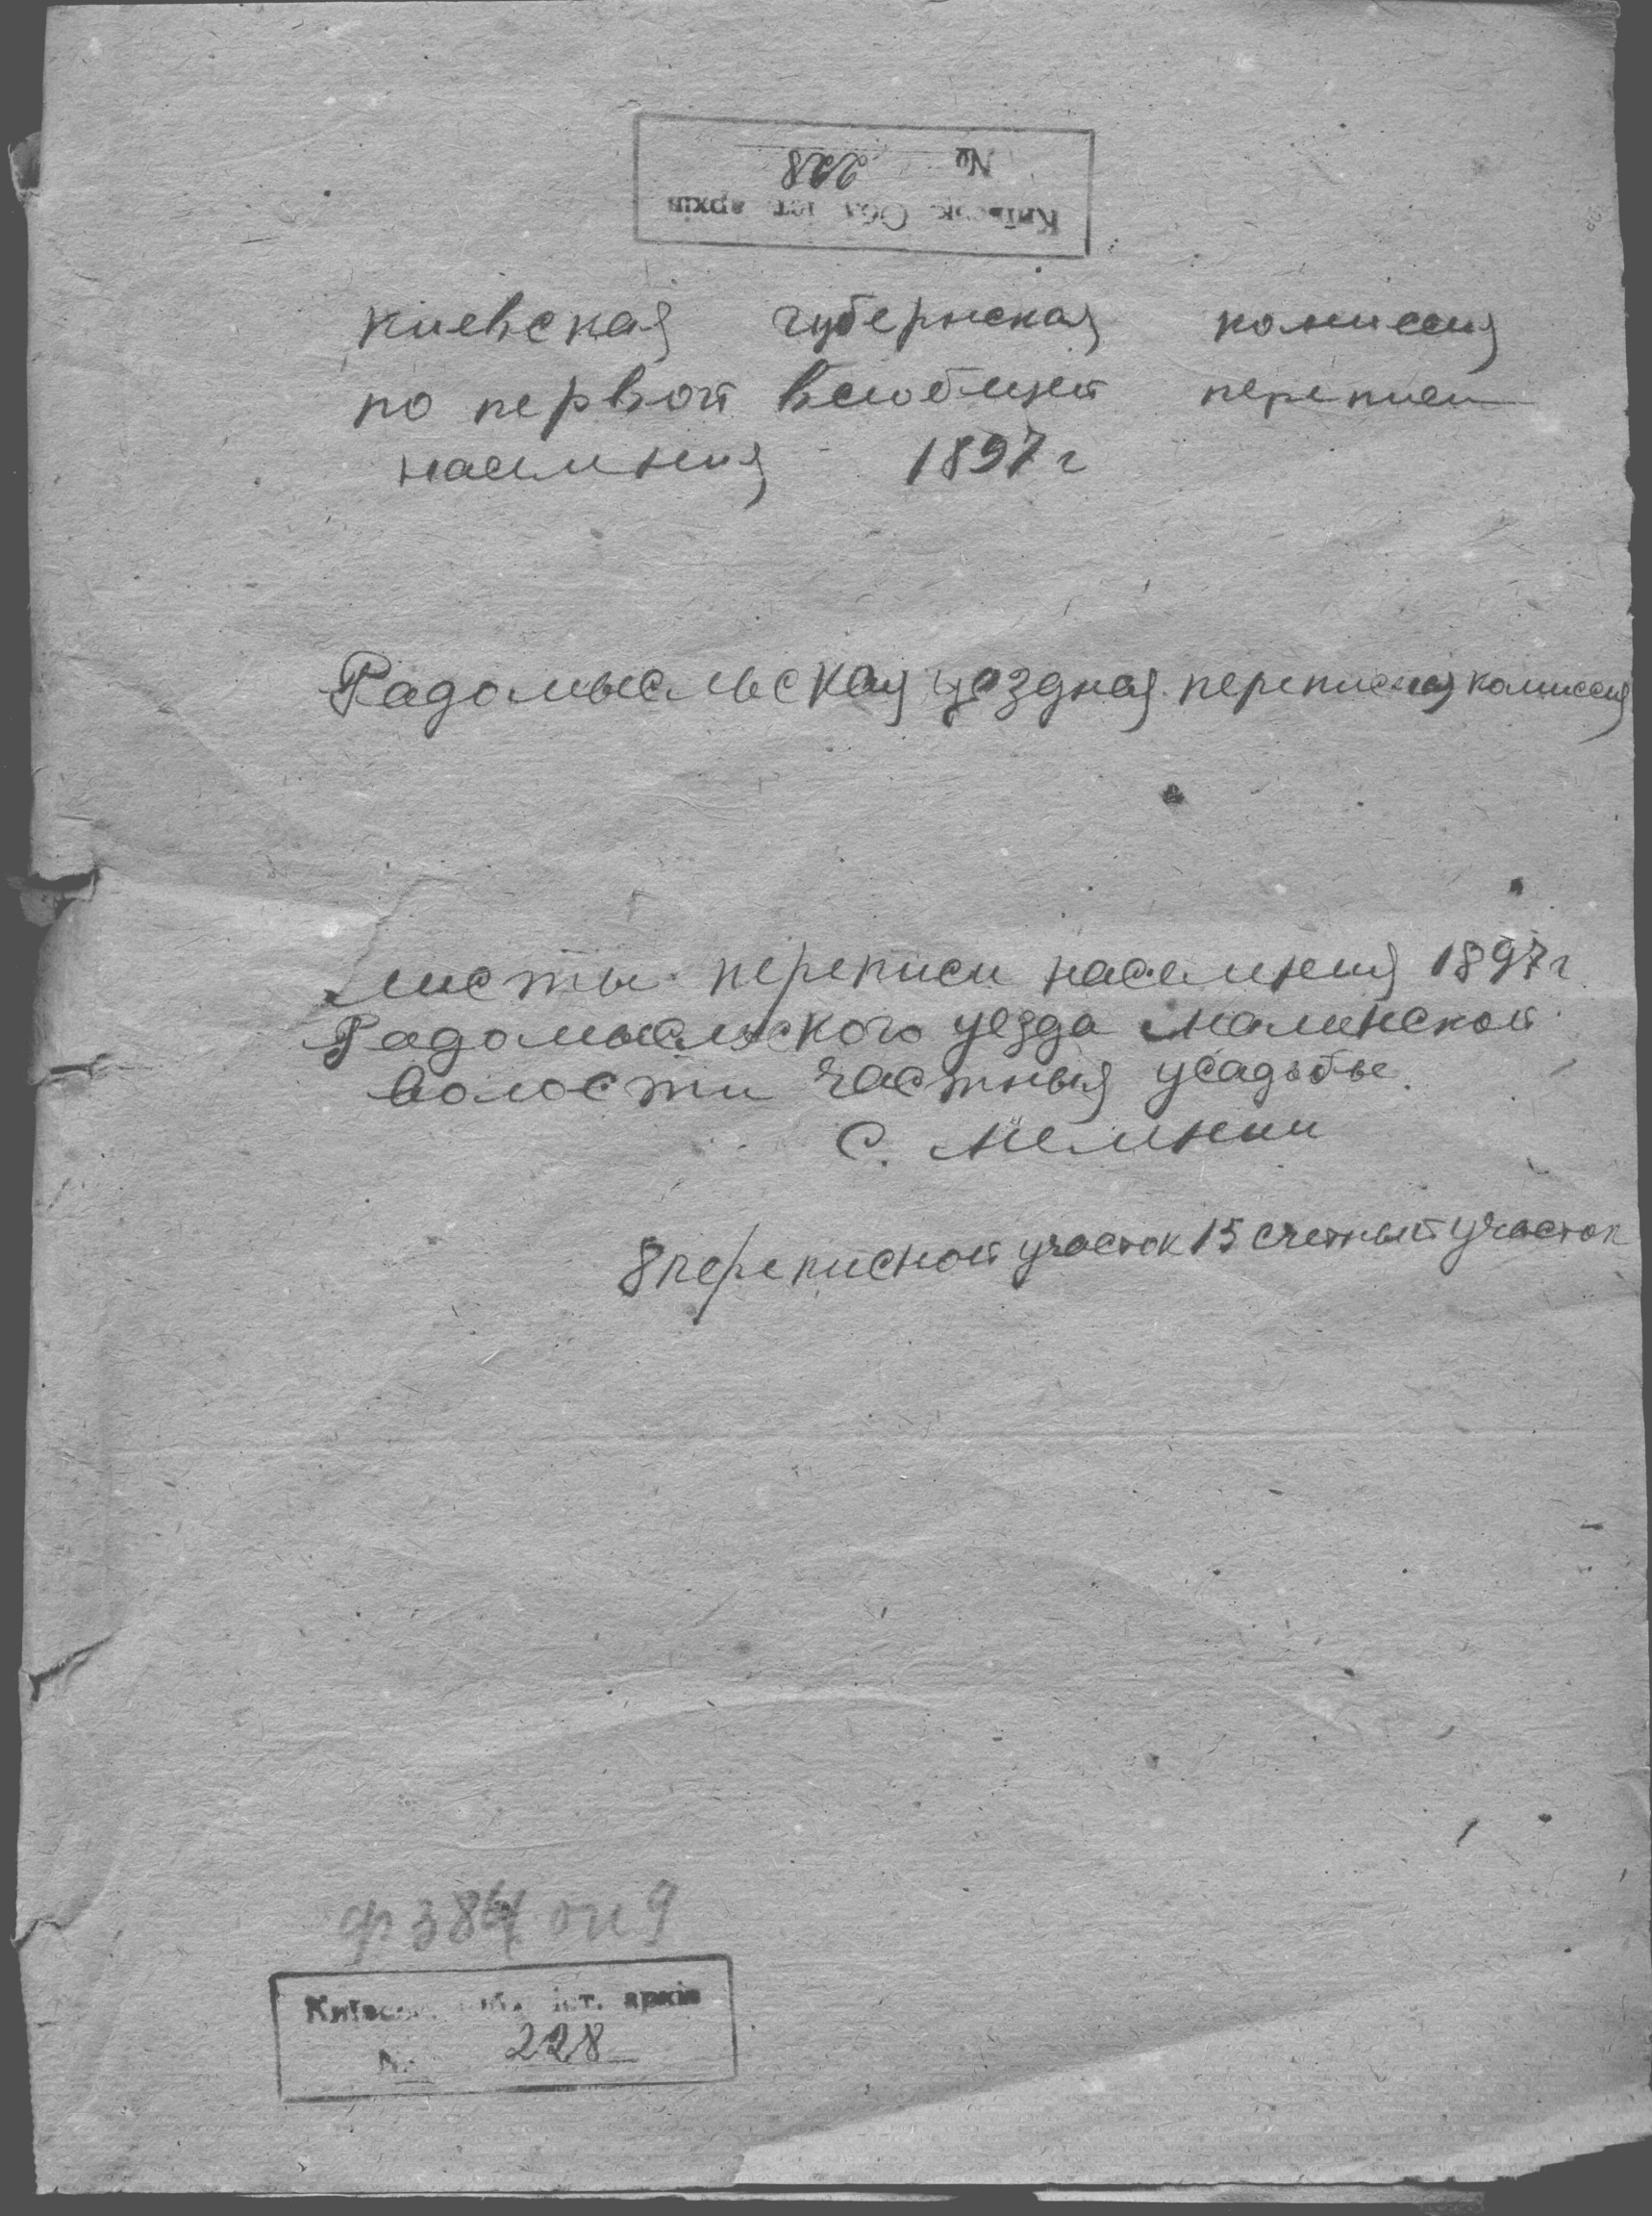 № 228
Київськ. Обл. іст. архів
Киевская губернская комиссия
по первой всеобщей переписи
населения 1897 г
Радомысльская уездная переписная комиссия
Листы переписи населения 1897 г.
Радомысльского уезда Малинской
волости частныя усадьбы.
С.
8 переписной участок 15 счетный участок
ф 384 оп 9
Київськ. обл. іст. архів
№ 228